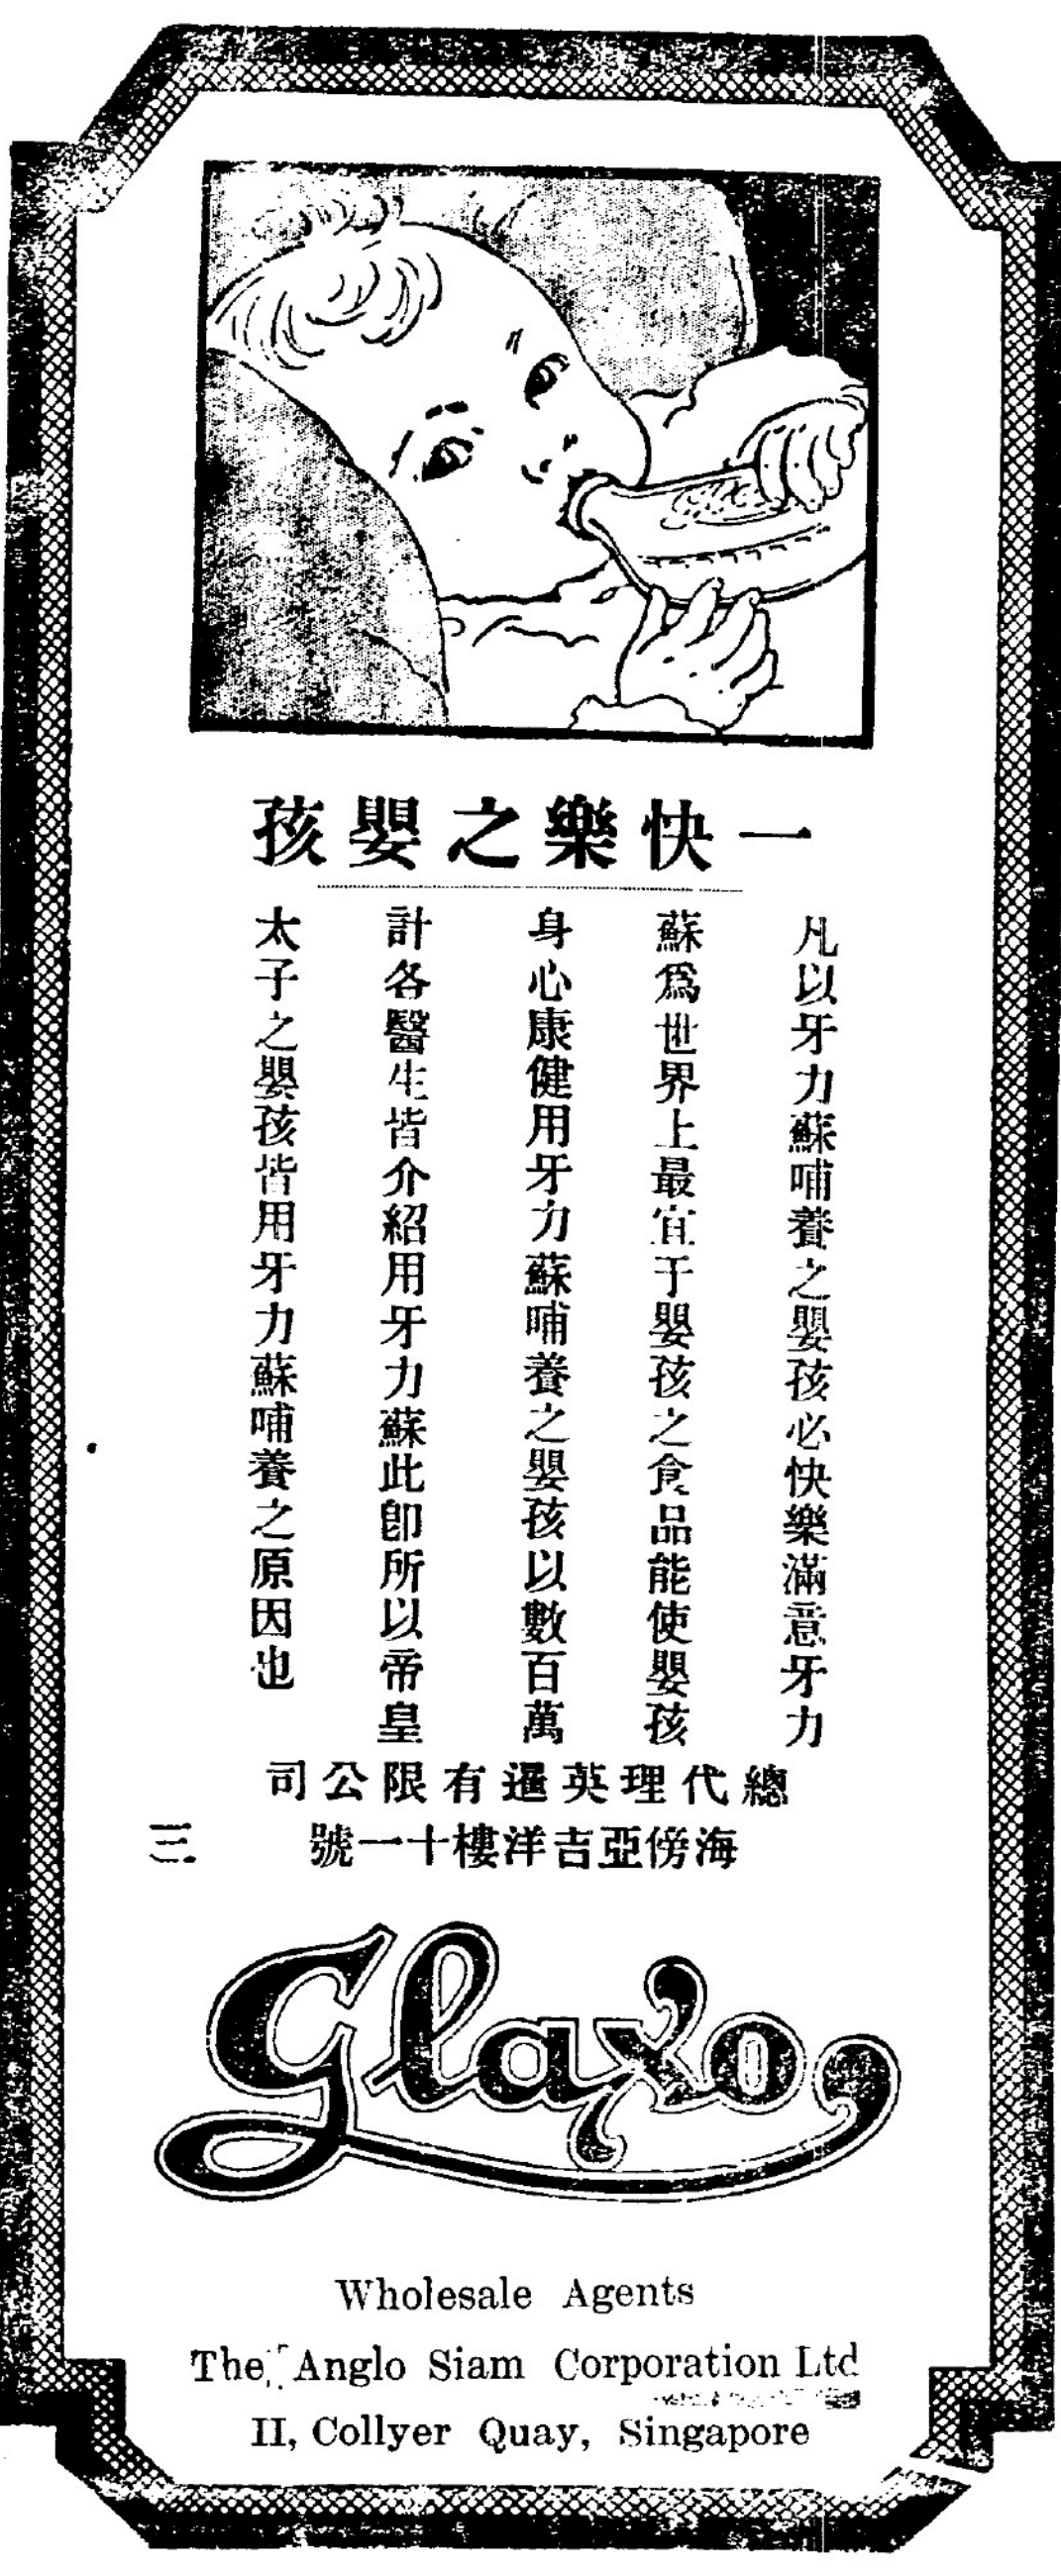 一快樂之嬰孩
凡以牙力蘇哺養之嬰孩必快樂滿意牙力
蘇爲世界上最宜于嬰孩之食品能使嬰孩
身心康健用牙力蘇哺養之嬰孩以數百萬
計各醫生皆介紹用牙力蘇此卽所以帝皇
太子之嬰孩皆用牙力蘇哺養之原因也
總代理英暹有限公司
海傍亞吉洋樓十一號
三
Glaxo
Wholesale Agents
The Anglo Siam Corporation Ltd
II, Collyer Quay, Singapore